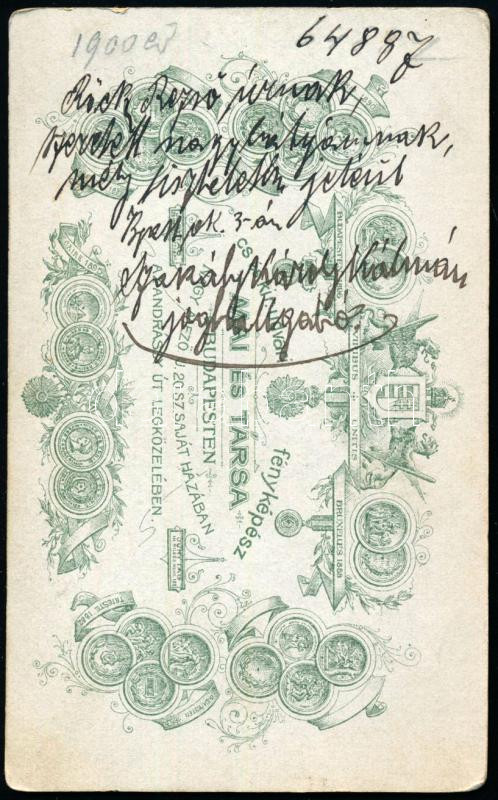 1900 eő
64887
Röck Rezső úrnak,
szeretett nagybátyámnak,
mély tisztelete jeléül
Bpest ok. 3-án
Szakály Károly Kálmán
joghallgató.
MAI ÉS TÁRSA
fényképész
BUDAPESTEN
SZ SAJÁT HÁZÁBAN
ANDRÁSSY ÚT LEGKÖZELÉBEN.
VIRIBUS UNITIS
BRUXELLES 1888
TRIESTE 1882